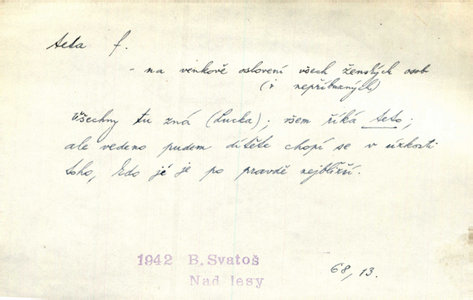 teta f.
- na venkově oslovení všech ženských osob
(i nepříbuzných)
Všechny tu zná (Lucka); všem říká teto;
ale vedeno pudem dítěte chopí se v úzkosti
toho, kdo jí je po pravdě nejbližší.
1942 B. Svatoš
Nad lesy
68, 13.